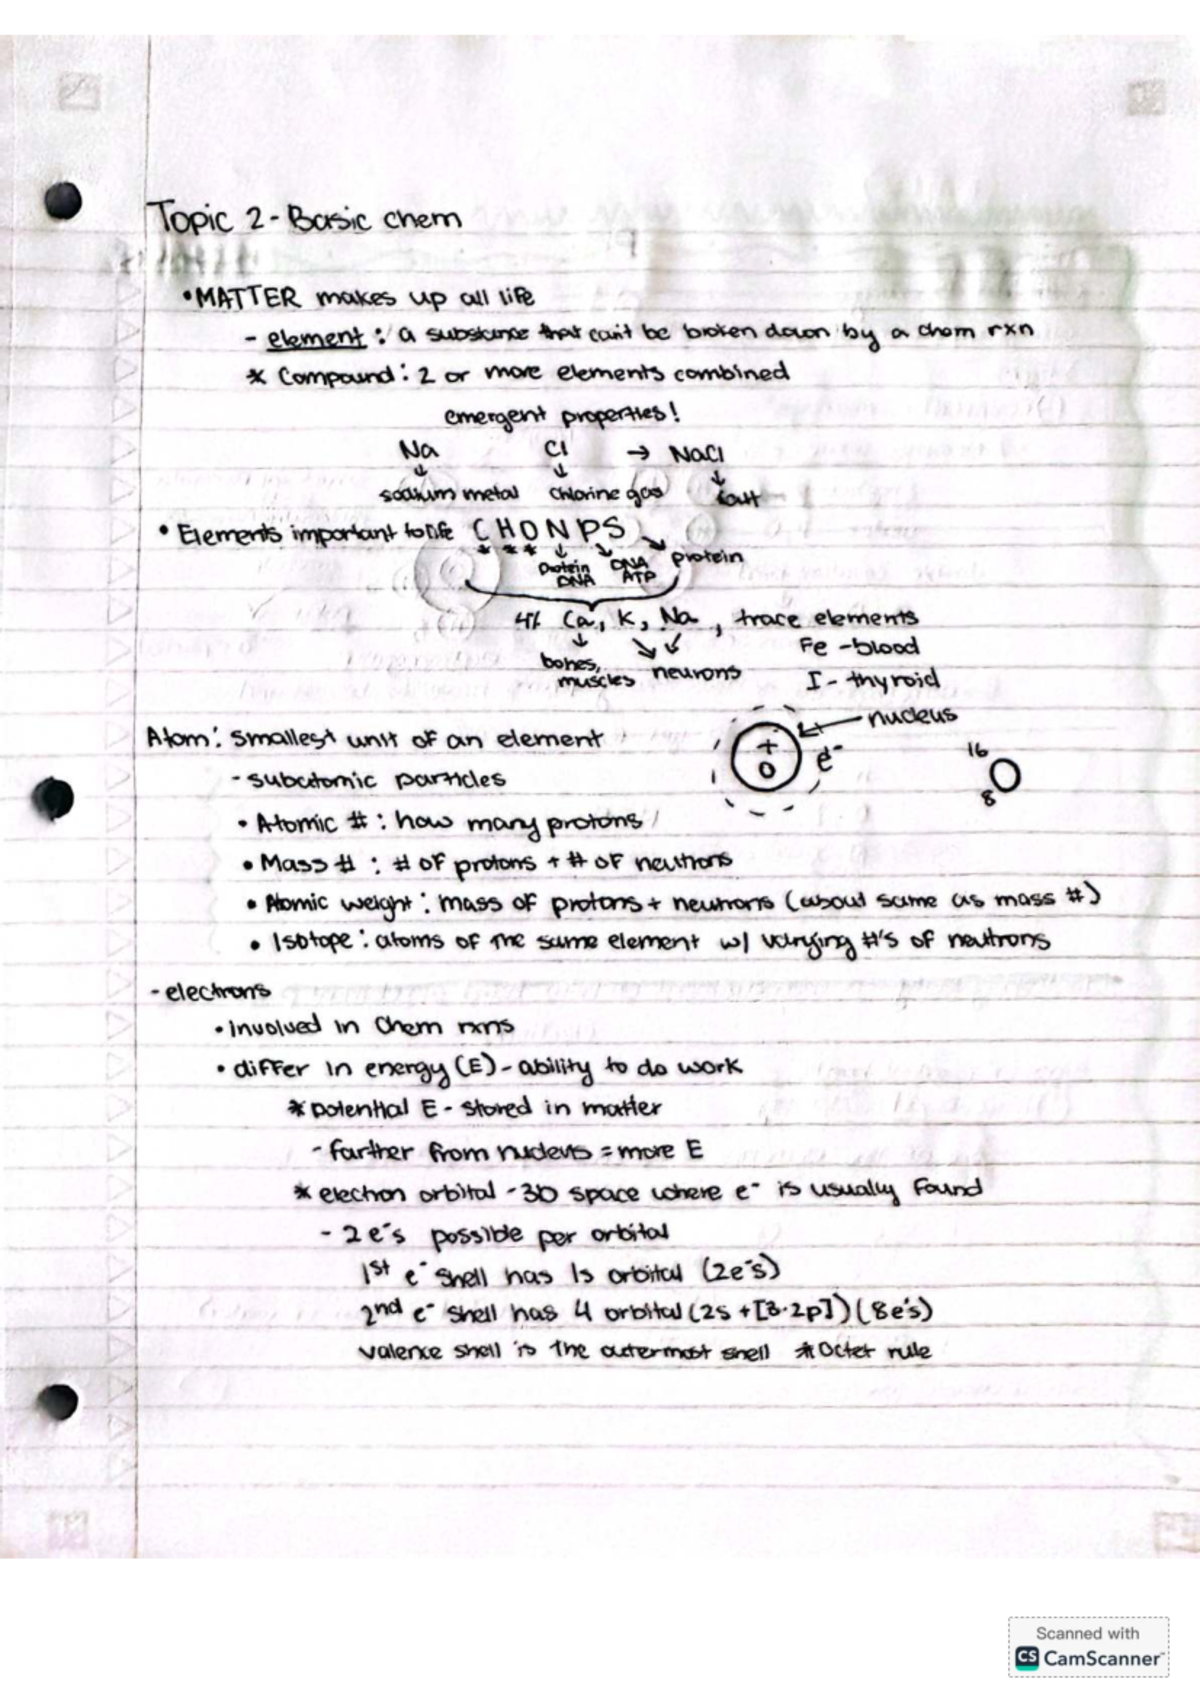 Topic 2 - Basic chem
• MATTER makes up all life
- element : a substance that can't be broken down by a chem rxn
* Compound : 2 or more elements combined
emergent properties!
Na Cl → NaCl
↓ ↓ ↓
sodium metal chlorine gas salt
• Elements important to life C H O N P S
* * * ↓ ↘ ↘
Protein DNA protein
DNA ATP
4% Ca, K, Na, trace elements
↓ ↘ ↙ Fe - blood
bones, neurons
muscles I - thyroid
nucleus
Atom : smallest unit of an element + 16
O e⁻ O
- subatomic particles 8
• Atomic # : how many protons
• Mass # : # of protons + # of neutrons
• Atomic weight : mass of protons + neutrons (about same as mass #)
• Isotope : atoms of the same element w/ varying #'s of neutrons
- electrons
• involved in chem rxns
• differ in energy (E) - ability to do work
* potential E - stored in matter
- farther from nucleus = more E
* electron orbital - 3D space where e⁻ is usually found
- 2 e⁻'s possible per orbital
1st e⁻ shell has 1s orbital (2e⁻'s)
2nd e⁻ shell has 4 orbital (2s + [3·2p]) (8e⁻'s)
valence shell is the outermost shell * Octet rule
Scanned with
CS CamScanner